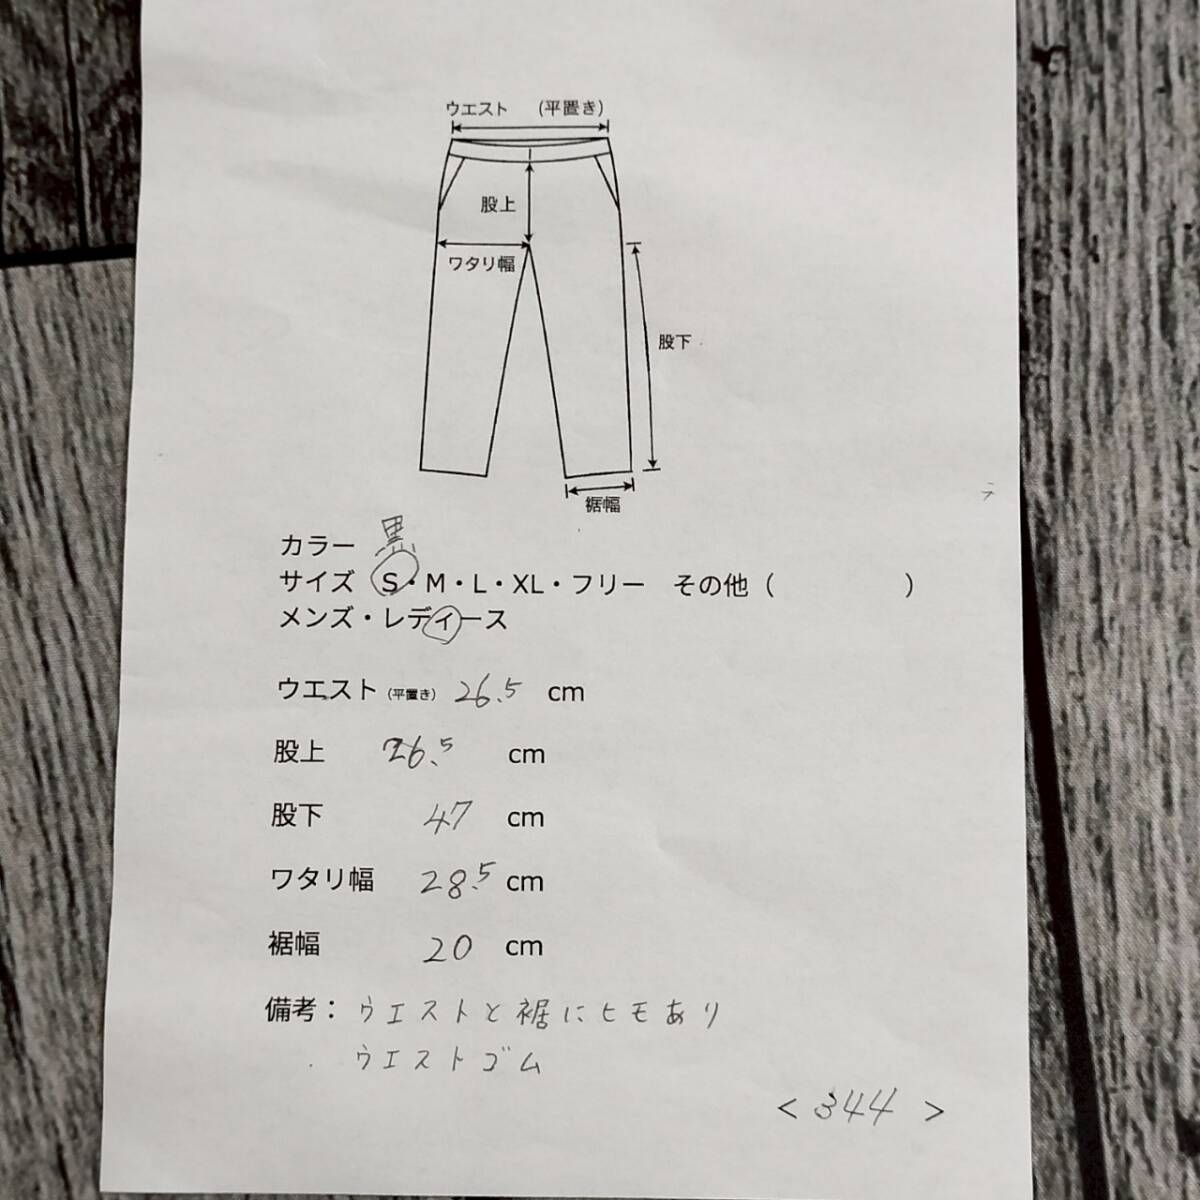 ウエスト (平置き)
股上
ワタリ幅
股下
裾幅
カラー 黒
サイズ S・M・L・XL・フリー その他（ ）
メンズ・レディース
ウエスト（平置き） 26.5 cm
股上 26.5 cm
股下 47 cm
ワタリ幅 28.5 cm
裾幅 20 cm
備考： ウエストと裾にヒモあり
ウエストゴム
< 344 >